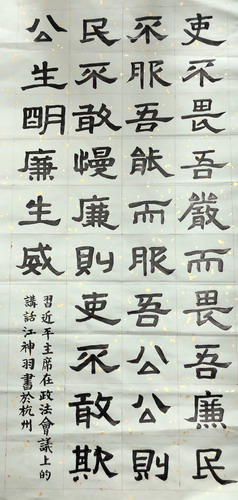 吏不畏吾嚴而畏吾廉民
不服吾能而服吾公公則
民不敢慢廉則吏不敢欺
公生明廉生威
習近平主席在政法會議上的
講話江神羽書於杭州